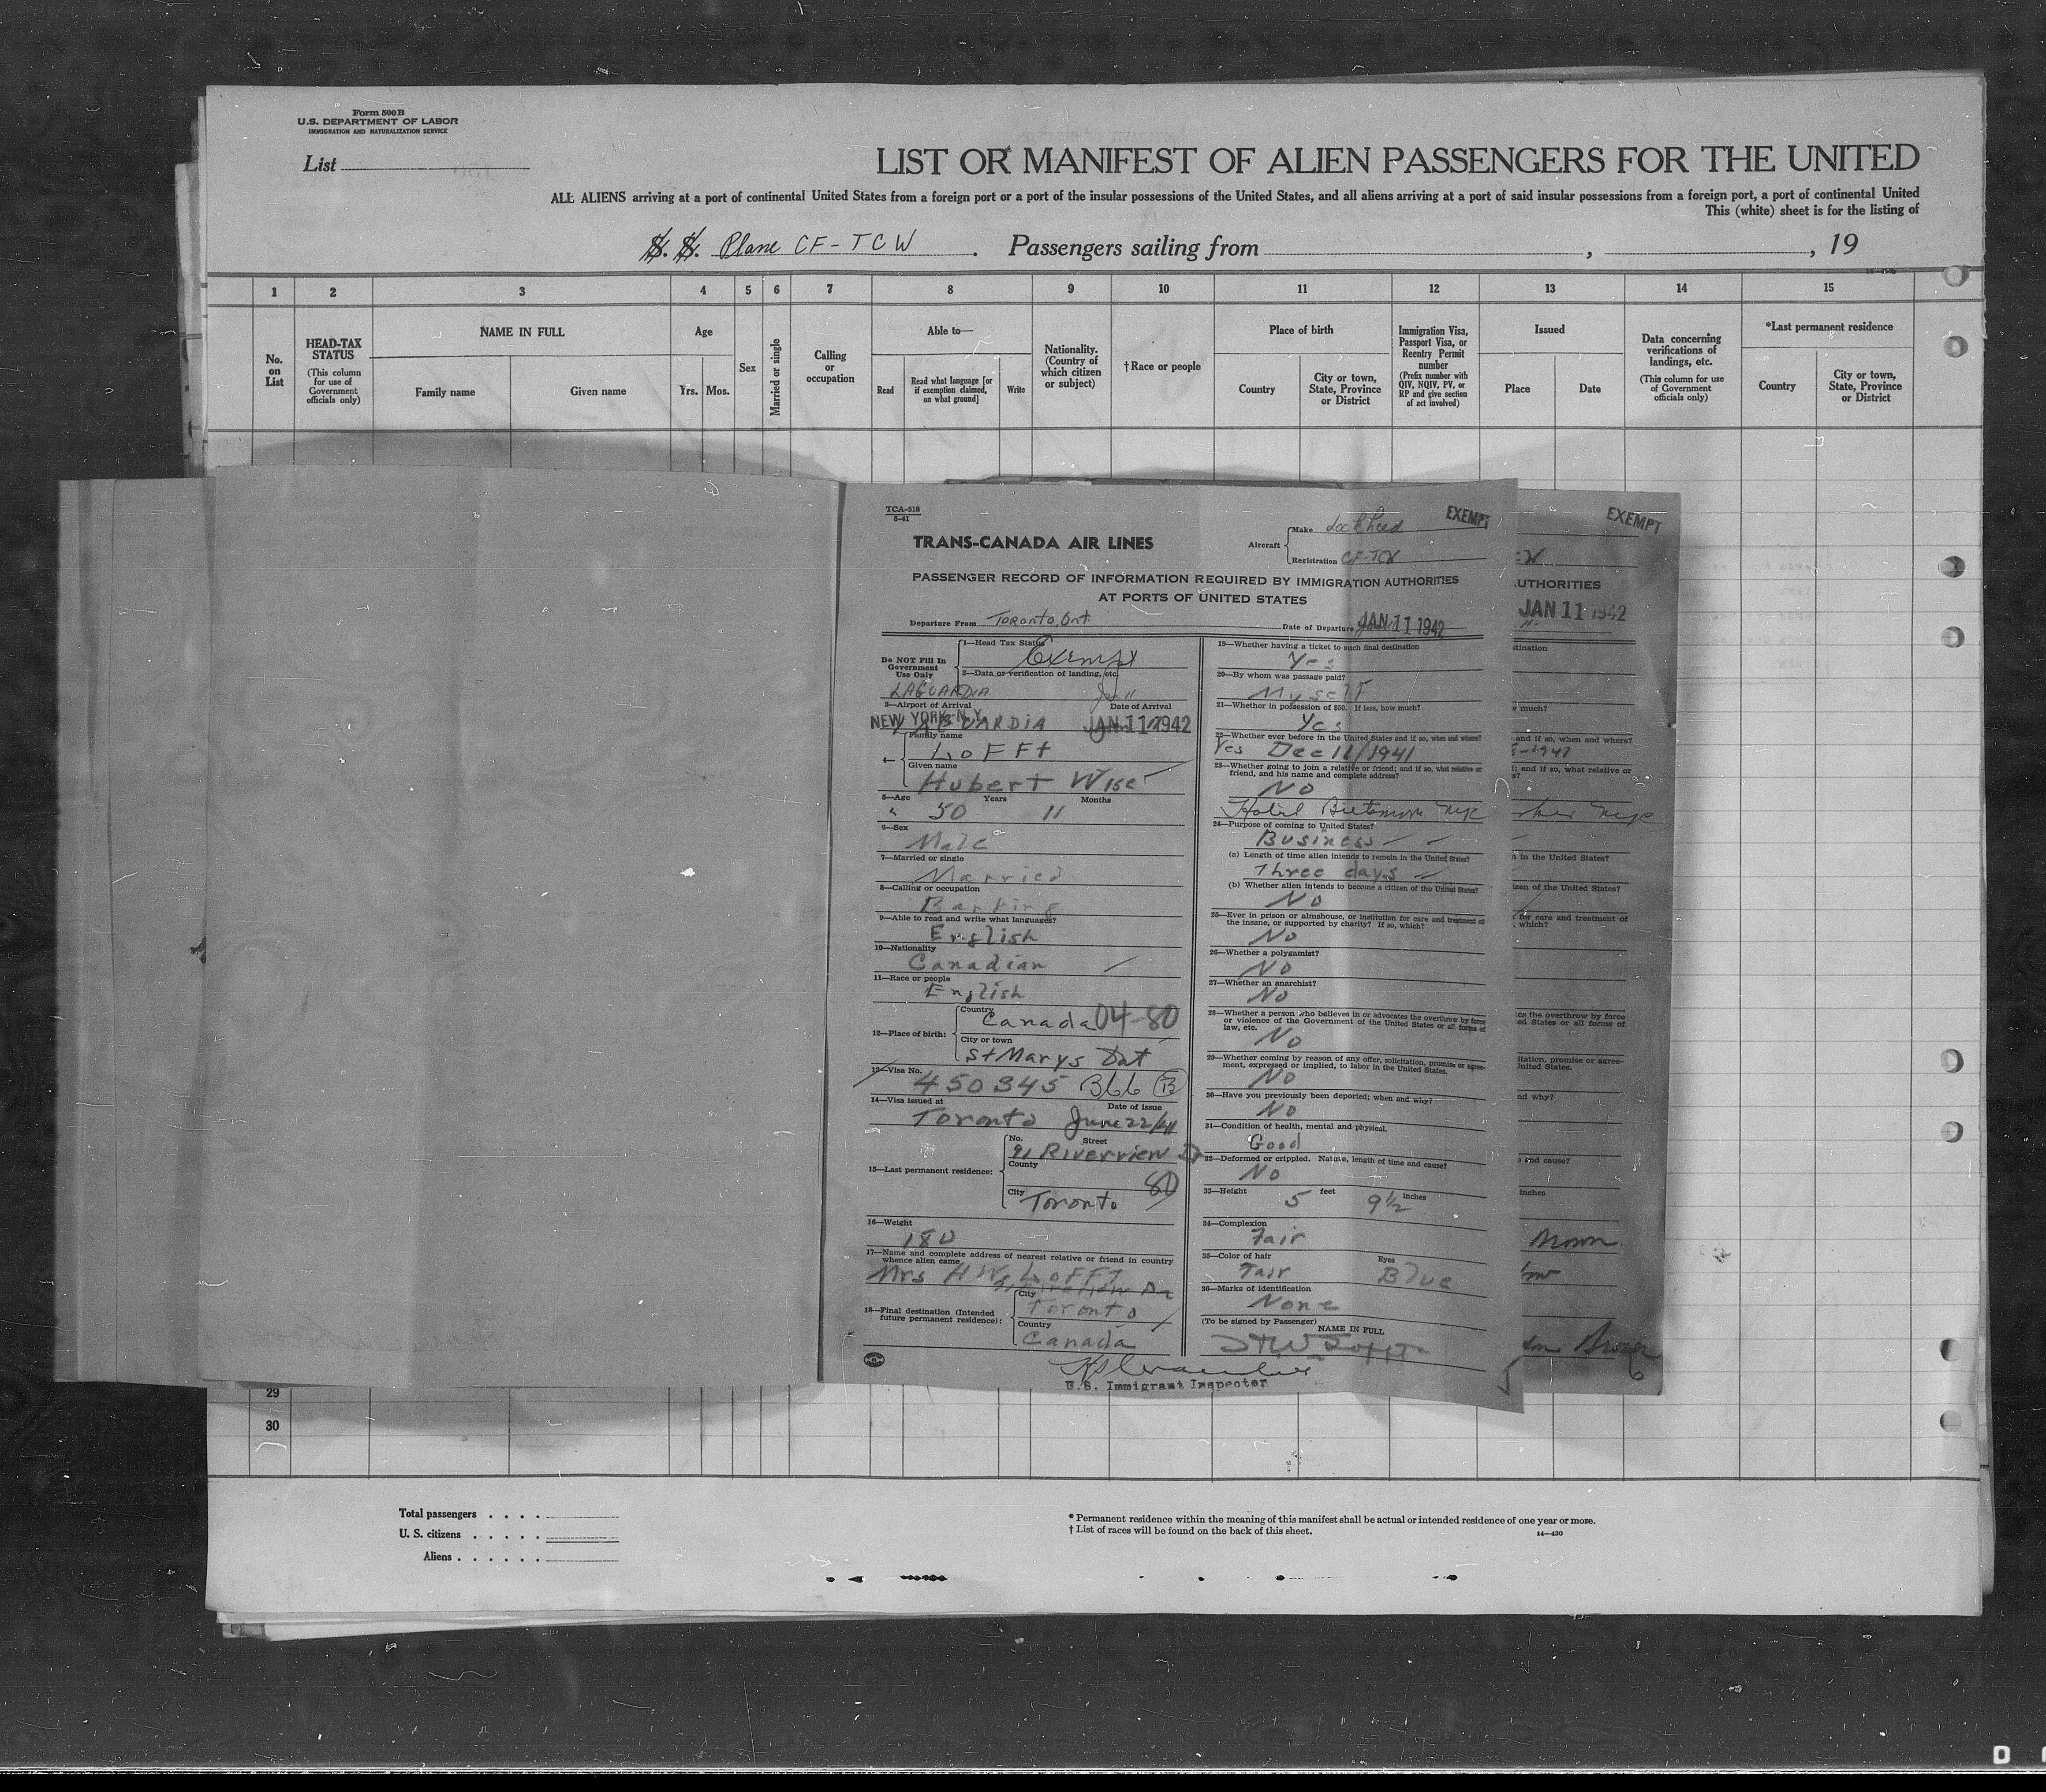 Form 500B
U.S. DEPARTMENT OF LABOR
IMMIGRATION AND NATURALIZATION SERVICE
List
LIST OR MANIFEST OF ALIEN PASSENGERS FOR THE UNITED
ALL ALIENS arriving at a port of continental United States from a foreign port or a port of the insular possessions of the United States, and all aliens arriving at a port of said insular possessions from a foreign port, a port of continental United
This (white) sheet is for the listing of
S. S. Plane CF-TCW. Passengers sailing from , , 19
1 2 3 4 5 6 7 8 9 10 11 12 13 14 15
No. on List
HEAD-TAX STATUS
(This column for use of Government officials only)
NAME IN FULL
Family name Given name
Age
Yrs. Mos.
Sex
Married or single
Calling or occupation
Able to—
Read
Read what language [or if exemption claimed, on what ground]
Write
Nationality. (Country of which citizen or subject)
†Race or people
Place of birth
Country
City or town, State, Province or District
Immigration Visa, Passport Visa, or Reentry Permit number
(Prefix number with QIV, NQIV, PV, or RP and give section of act involved)
Issued
Place Date
Data concerning verifications of landings, etc.
(This column for use of Government officials only)
*Last permanent residence
Country
City or town, State, Province or District
TCA-518
5-41
TRANS-CANADA AIR LINES
Aircraft
Make Lockheed
Registration CF-TCW
EXEMPT
PASSENGER RECORD OF INFORMATION REQUIRED BY IMMIGRATION AUTHORITIES
AT PORTS OF UNITED STATES
Departure From Toronto, Ont.
Date of Departure JAN 11 1942
Do NOT Fill In Government Use Only
1—Head Tax Status
Exempt
2—Data or verification of landing, etc.
LAGUARDIA
3—Airport of Arrival Date of Arrival
NEW YORK, N.Y. LAGUARDIA JAN 11 1942
4—
Family name
Lofft
Given name
Hubert Wise
5—Age Years Months
50 11
6—Sex
Male
7—Married or single
Married
8—Calling or occupation
Banking
9—Able to read and write what languages?
English
10—Nationality
Canadian
11—Race or people
English
12—Place of birth:
Country
Canada 04-80
City or town
St Marys Ont
13—Visa No.
450345 B66 B
14—Visa issued at Date of issue
Toronto June 22/41
15—Last permanent residence:
No. Street
91 Riverview Dr
County
80
City
Toronto
16—Weight
180
17—Name and complete address of nearest relative or friend in country whence alien came.
Mrs H W Lofft
18—Final destination (Intended future permanent residence):
City
Toronto
Country
Canada
19—Whether having a ticket to such final destination
Yes
20—By whom was passage paid?
Myself
21—Whether in possession of $50. If less, how much?
Yes
22—Whether ever before in the United States and if so, when and where?
Yes Dec 11/1941
23—Whether going to join a relative or friend; and if so, what relative or friend, and his name and complete address?
NO
Hotel Biltmore NYC
24—Purpose of coming to United States?
Business
(a) Length of time alien intends to remain in the United States?
Three days
(b) Whether alien intends to become a citizen of the United States?
No
25—Ever in prison or almshouse, or institution for care and treatment of the insane, or supported by charity? If so, which?
No
26—Whether a polygamist?
No
27—Whether an anarchist?
No
28—Whether a person who believes in or advocates the overthrow by force or violence of the Government of the United States or all forms of law, etc.
No
29—Whether coming by reason of any offer, solicitation, promise or agreement, expressed or implied, to labor in the United States.
No
30—Have you previously been deported; when and why?
No
31—Condition of health, mental and physical.
Good
32—Deformed or crippled. Nature, length of time and cause?
No
33—Height 5 feet 9½ inches
34—Complexion
Fair
35—Color of hair Eyes
Fair Blue
36—Marks of identification
None
(To be signed by Passenger) NAME IN FULL
H W Lofft
U.S. Immigrant Inspector
5
EXEMPT
AUTHORITIES
JAN 11 1942
Brown
6
29
30
Total passengers . . . .
U. S. citizens . . . . .
Aliens . . . . . .
* Permanent residence within the meaning of this manifest shall be actual or intended residence of one year or more.
† List of races will be found on the back of this sheet.
14—430